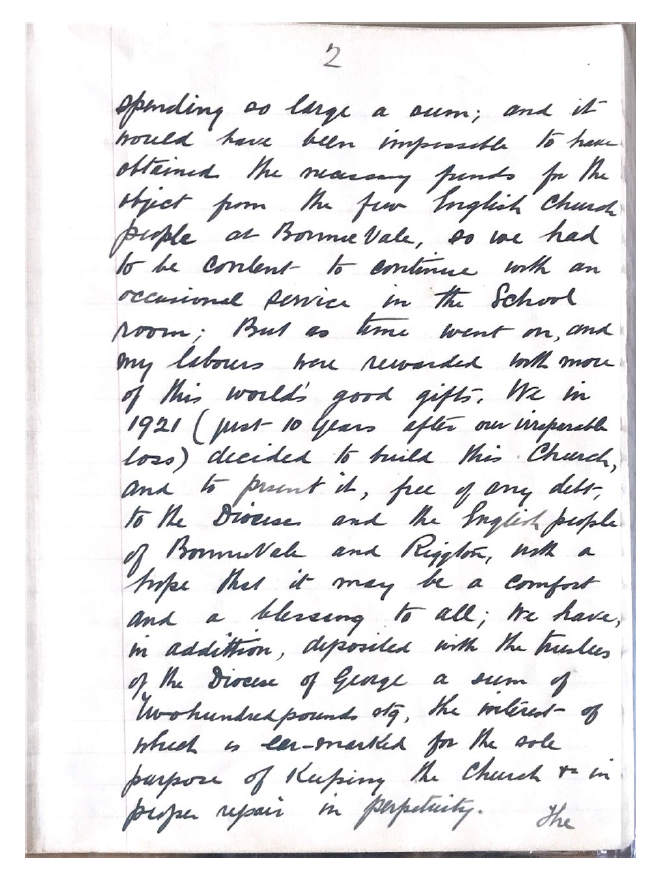 2
spending so large a sum; and it
would have been impossible to have
obtained the necessary funds for the
object from the few English Church
people at BonnieVale, so we had
to be content to continue with an
occasional service in the School
room; But as time went on, and
my labours were rewarded with more
of this world's good gifts. We in
1921 (just 10 years after our irreparable
loss) decided to build this Church,
and to present it, free of any debt,
to the Diocese and the English people
of BonnieVale and Riggton, with a
hope that it may be a comfort
and a blessing to all; We have,
in addittion, deposited with the trustees
of the Diocese of George a sum of
Twohundredpounds stg, the interest of
which is ear-marked for the sole
purpose of Keeping the Church &c in
proper repair in perpetuity.
The